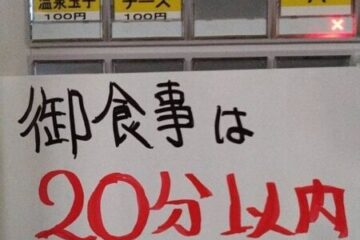 温泉玉子 チーズ
100円 100円
御食事は
20分以内